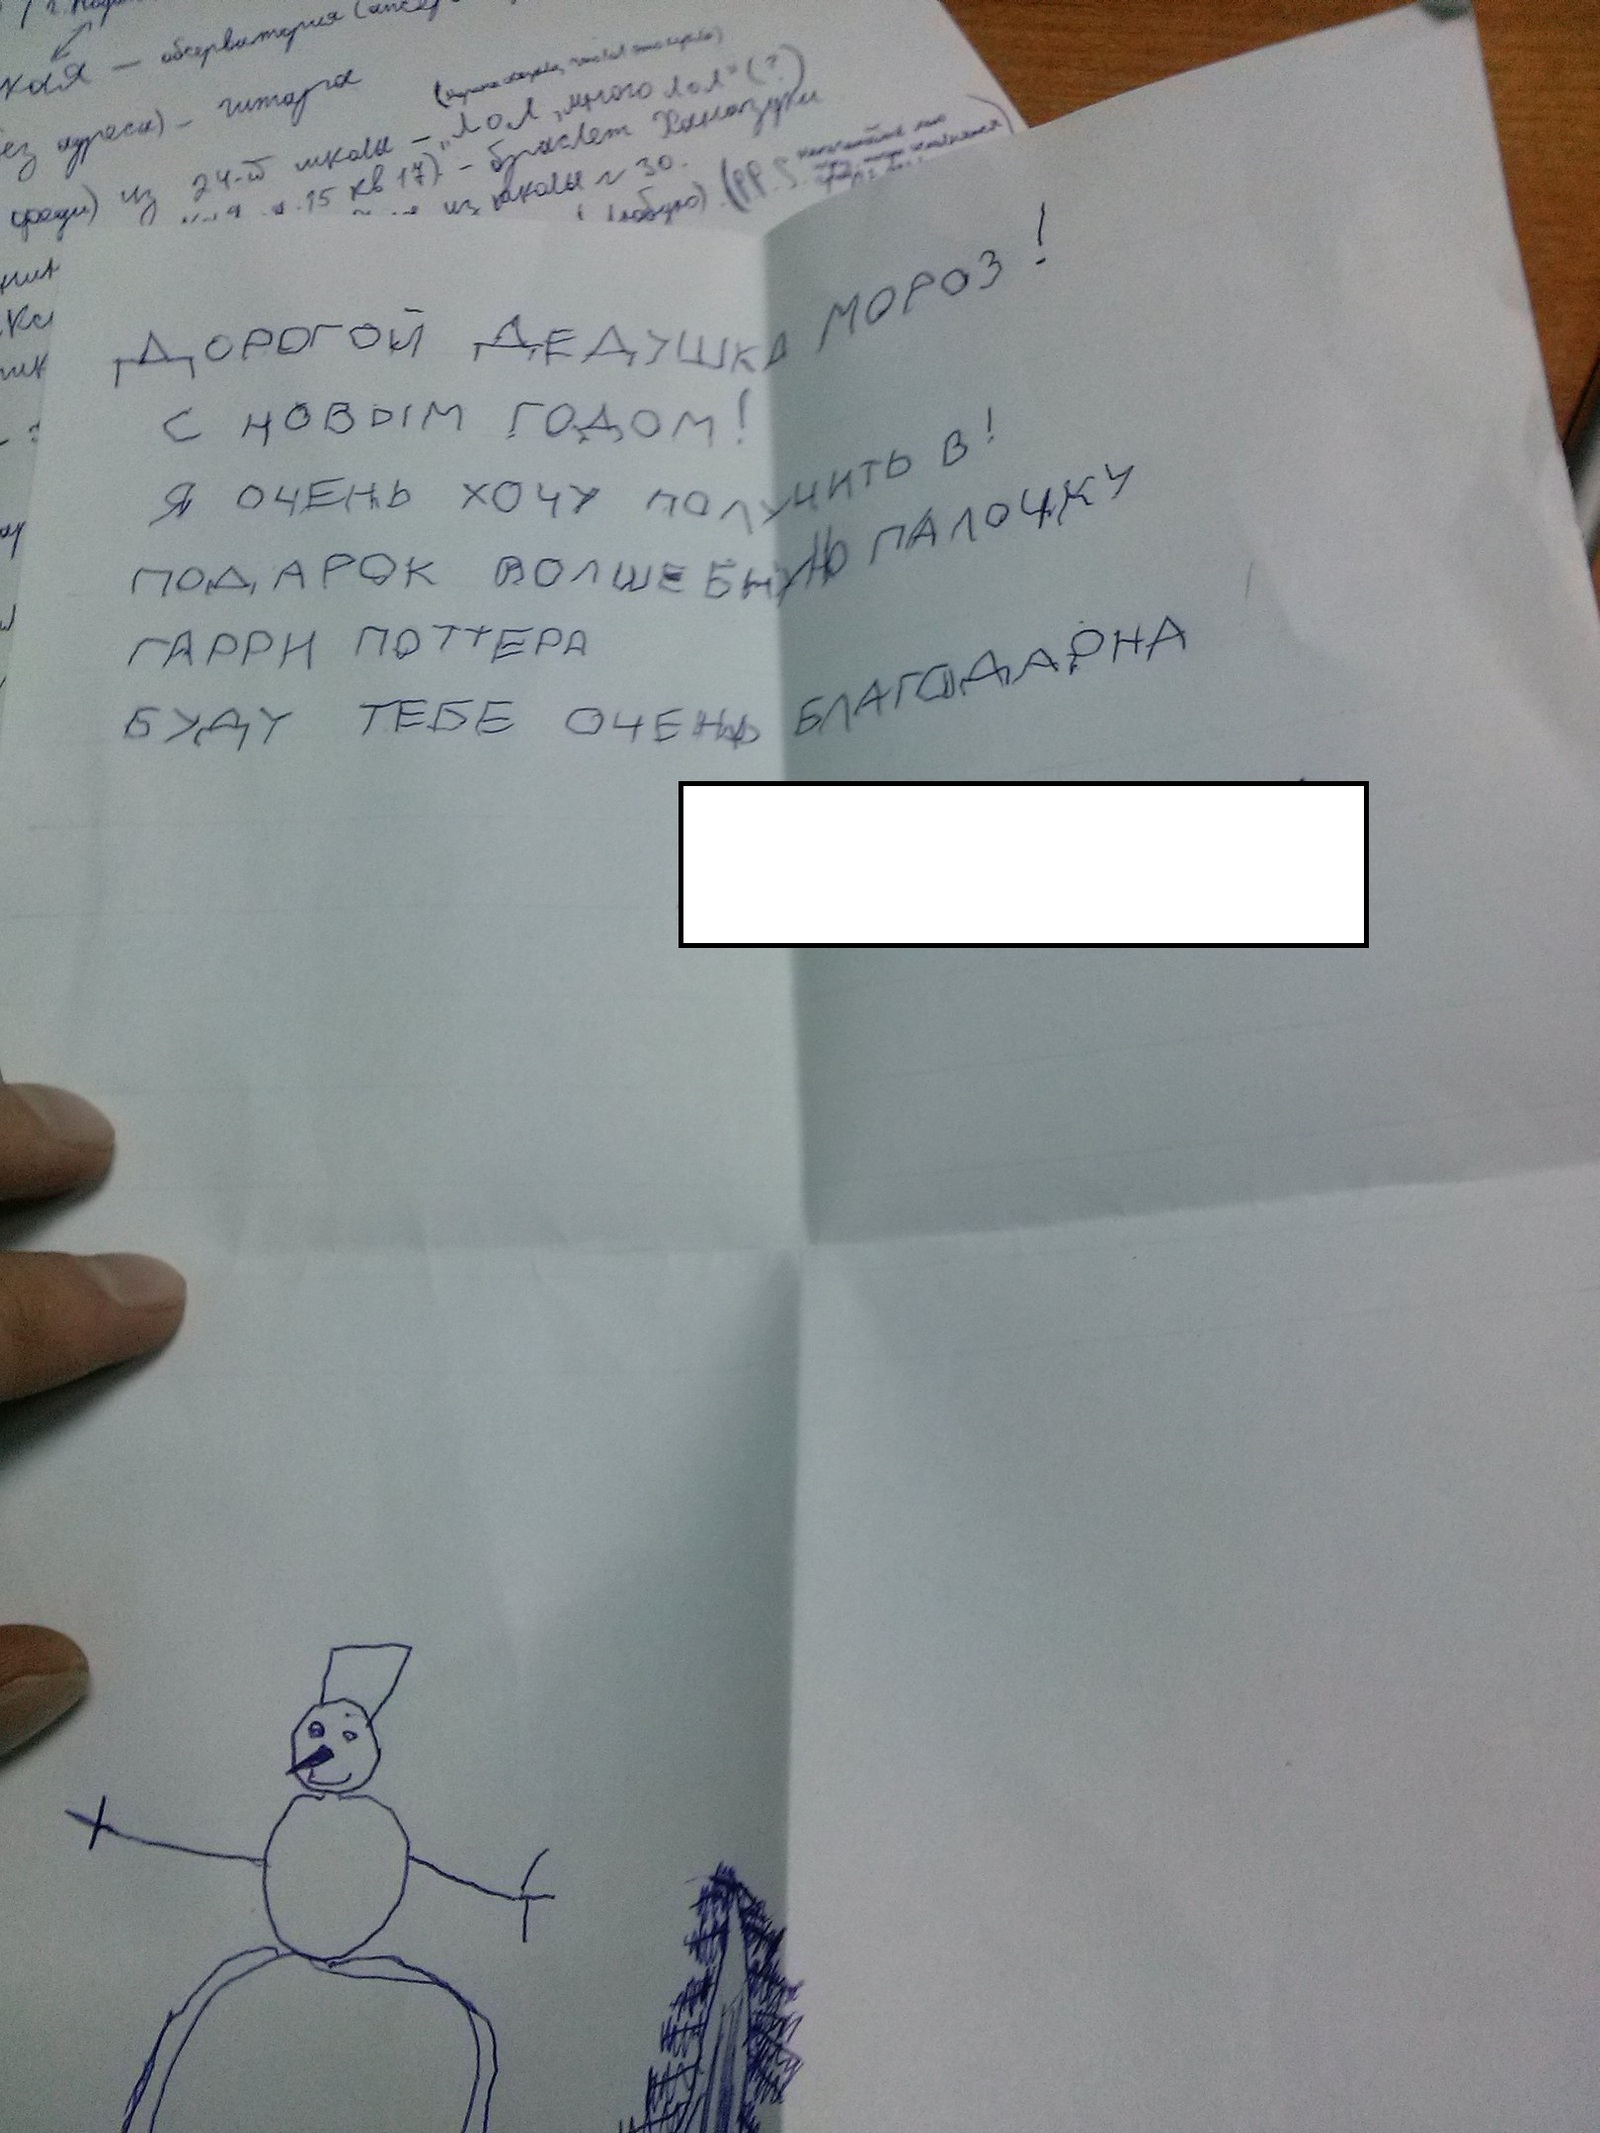 КАЯ — обсерватория
без адреса) - гитара
из 24-й школы - "ЛОЛ, много ЛОЛ" (?)
15 кв 17) - браслет Хамазуки
из школы № 30.
ДОРОГОЙ ДЕДУШКА МОРОЗ!
С НОВЫМ ГОДОМ!
Я ОЧЕНЬ ХОЧУ ПОЛУЧИТЬ В!
ПОДАРОК ВОЛШЕБНУЮ ПАЛОЧКУ
ГАРРИ ПОТТЕРА
БУДУ ТЕБЕ ОЧЕНЬ БЛАГОДАРНА